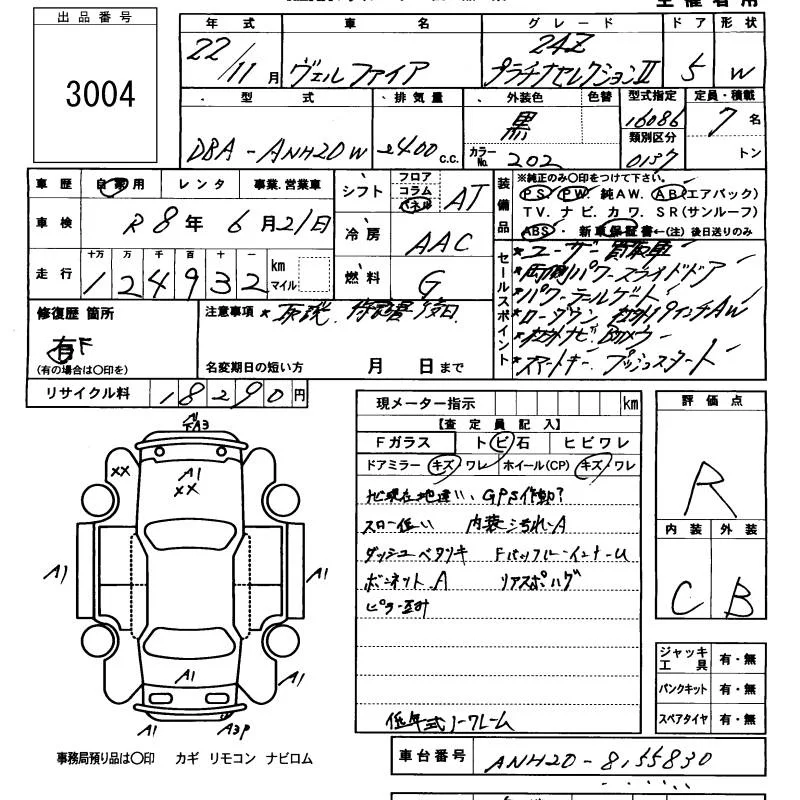 出品番号
3004
年式 車名 グレード ドア 形状
22/11月 ヴェルファイア 24Z プラチナセレクションⅡ 5 W
型式 排気量 外装色 色替 型式指定 定員・積載
DBA-ANH20W 2400 C.C. 黒 16086 7名
カラーNo. 202 類別区分 0137 トン
車歴 自家用 レンタ 事業.営業車
車検 R8年6月21日
走行 十万 万 千 百 十 一
124932 km マイル
シフト フロア コラム パネル AT
冷房 AAC
燃料 G
装備品
※純正のみ〇印をつけて下さい。
PS PW 純AW. AB(エアバック)
TV. ナビ. カワ. SR(サンルーフ)
ABS・新車保証書←(注)後日送りのみ
セールスポイント
*ユーザー買取車
*両側パワースライドドア
*パワーテールゲート
*ローダウン 社外19インチAW
*社外ナビ Bカメラ
*スマートキー プッシュスタート
修復歴 箇所
有 F
(有の場合は〇印を)
注意事項 *取説.保証書後日
名変期日の短い方 月 日まで
リサイクル料 18290円
現メーター指示 km
【査定員記入】
Fガラス トビ石 ヒビワレ
ドアミラー キズ・ワレ ホイール(CP) キズ・ワレ
GPS作動?
スロー低い 内装汚れ・A
ダッシュベタツキ FバックパネルーインナーU
ボンネット.A リアスポハゲ
低年式ノークレーム
評価点
R
内装 外装
C B
ジャッキ工具 有・無
パンクキット 有・無
スペアタイヤ 有・無
A3
XX
A1
XX
A1
A1
A1
A1
A1
A3P
事務局預り品は〇印 カギ リモコン ナビロム
車台番号 ANH20-8155830